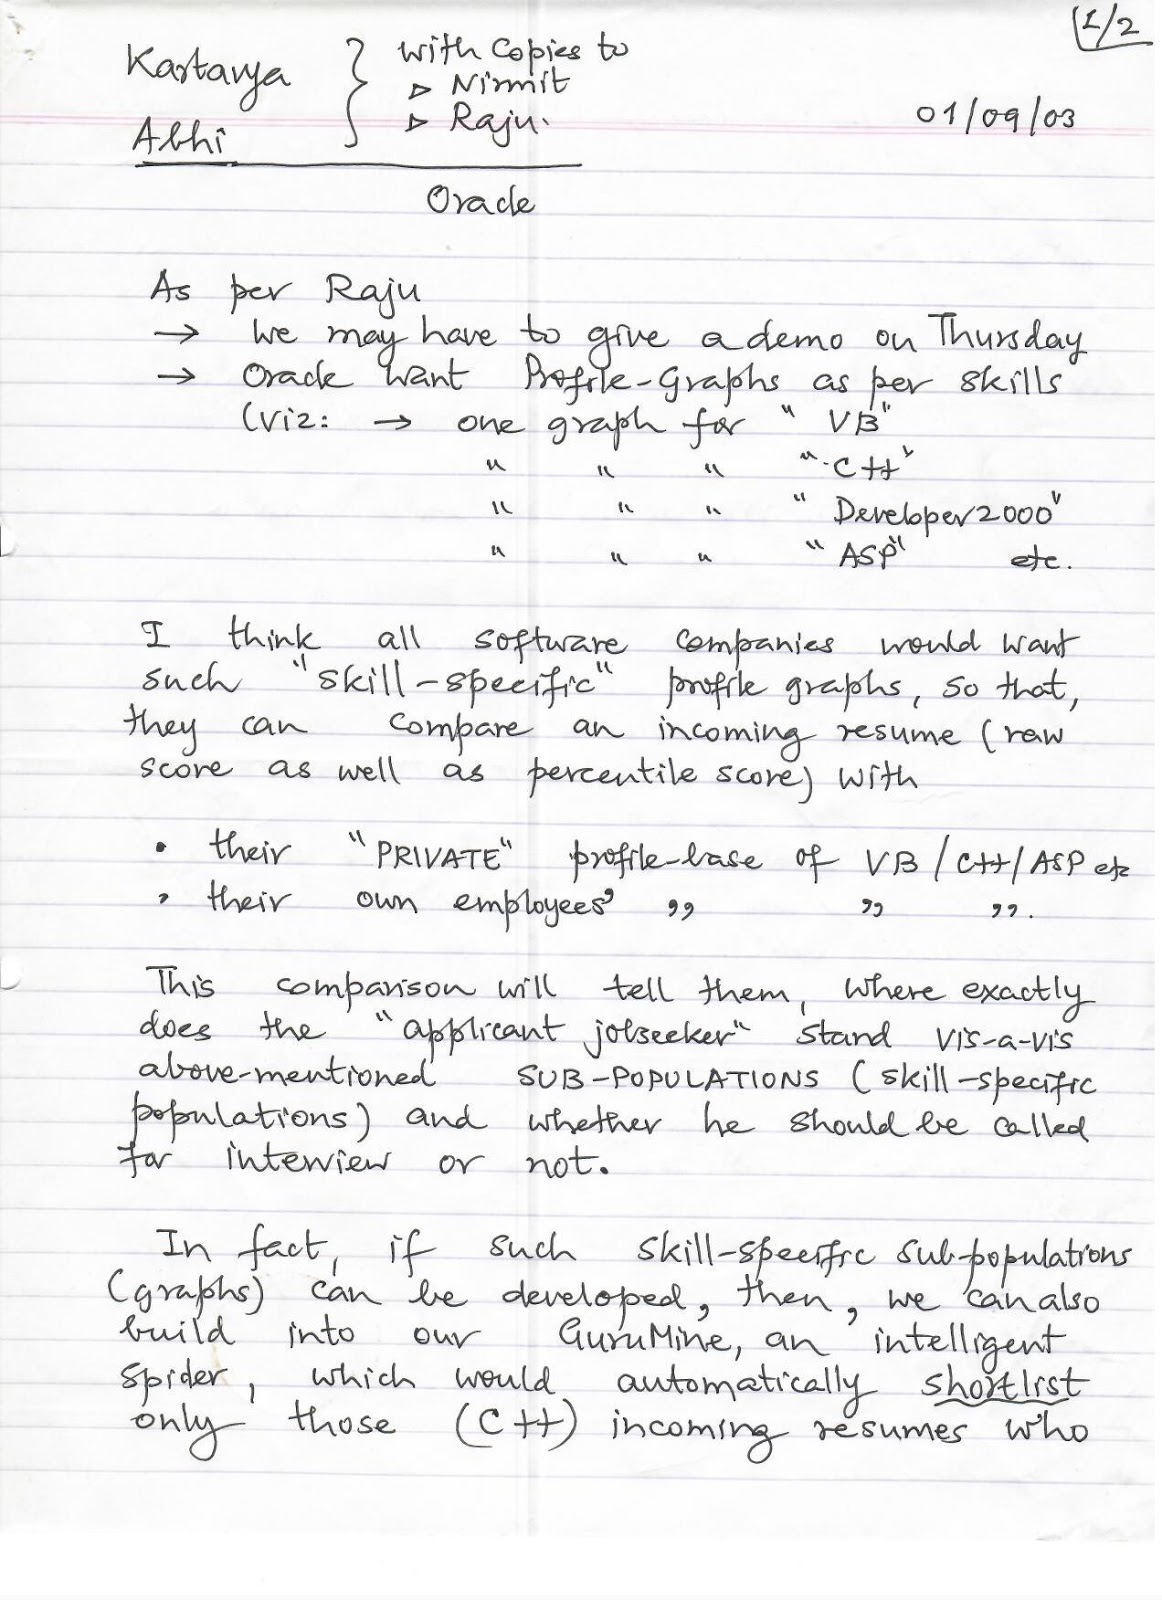 1/2
Kartavya } with copies to
▷ Nirmit
Abhi ▷ Raju.
01/09/03
Oracle
As per Raju
→ we may have to give a demo on Thursday
→ Oracle want Profile-Graphs as per skills
(viz: → one graph for "VB"
" " " "C++"
" " " "Developer2000"
" " " "ASP" etc.
I think all software companies would want
such "skill-specific" profile graphs, so that,
they can compare an incoming resume (raw
score as well as percentile score) with
• their "PRIVATE" profile-base of VB/C++/ASP etc
• their own employees' " " ".
This comparison will tell them, where exactly
does the "applicant jobseeker" stand vis-a-vis
above-mentioned SUB-POPULATIONS (skill-specific
populations) and whether he should be called
for interview or not.
In fact, if such skill-specific sub-populations
(graphs) can be developed, then, we can also
build into our GuruMine, an intelligent
spider, which would automatically shortlist
only those (C++) incoming resumes who